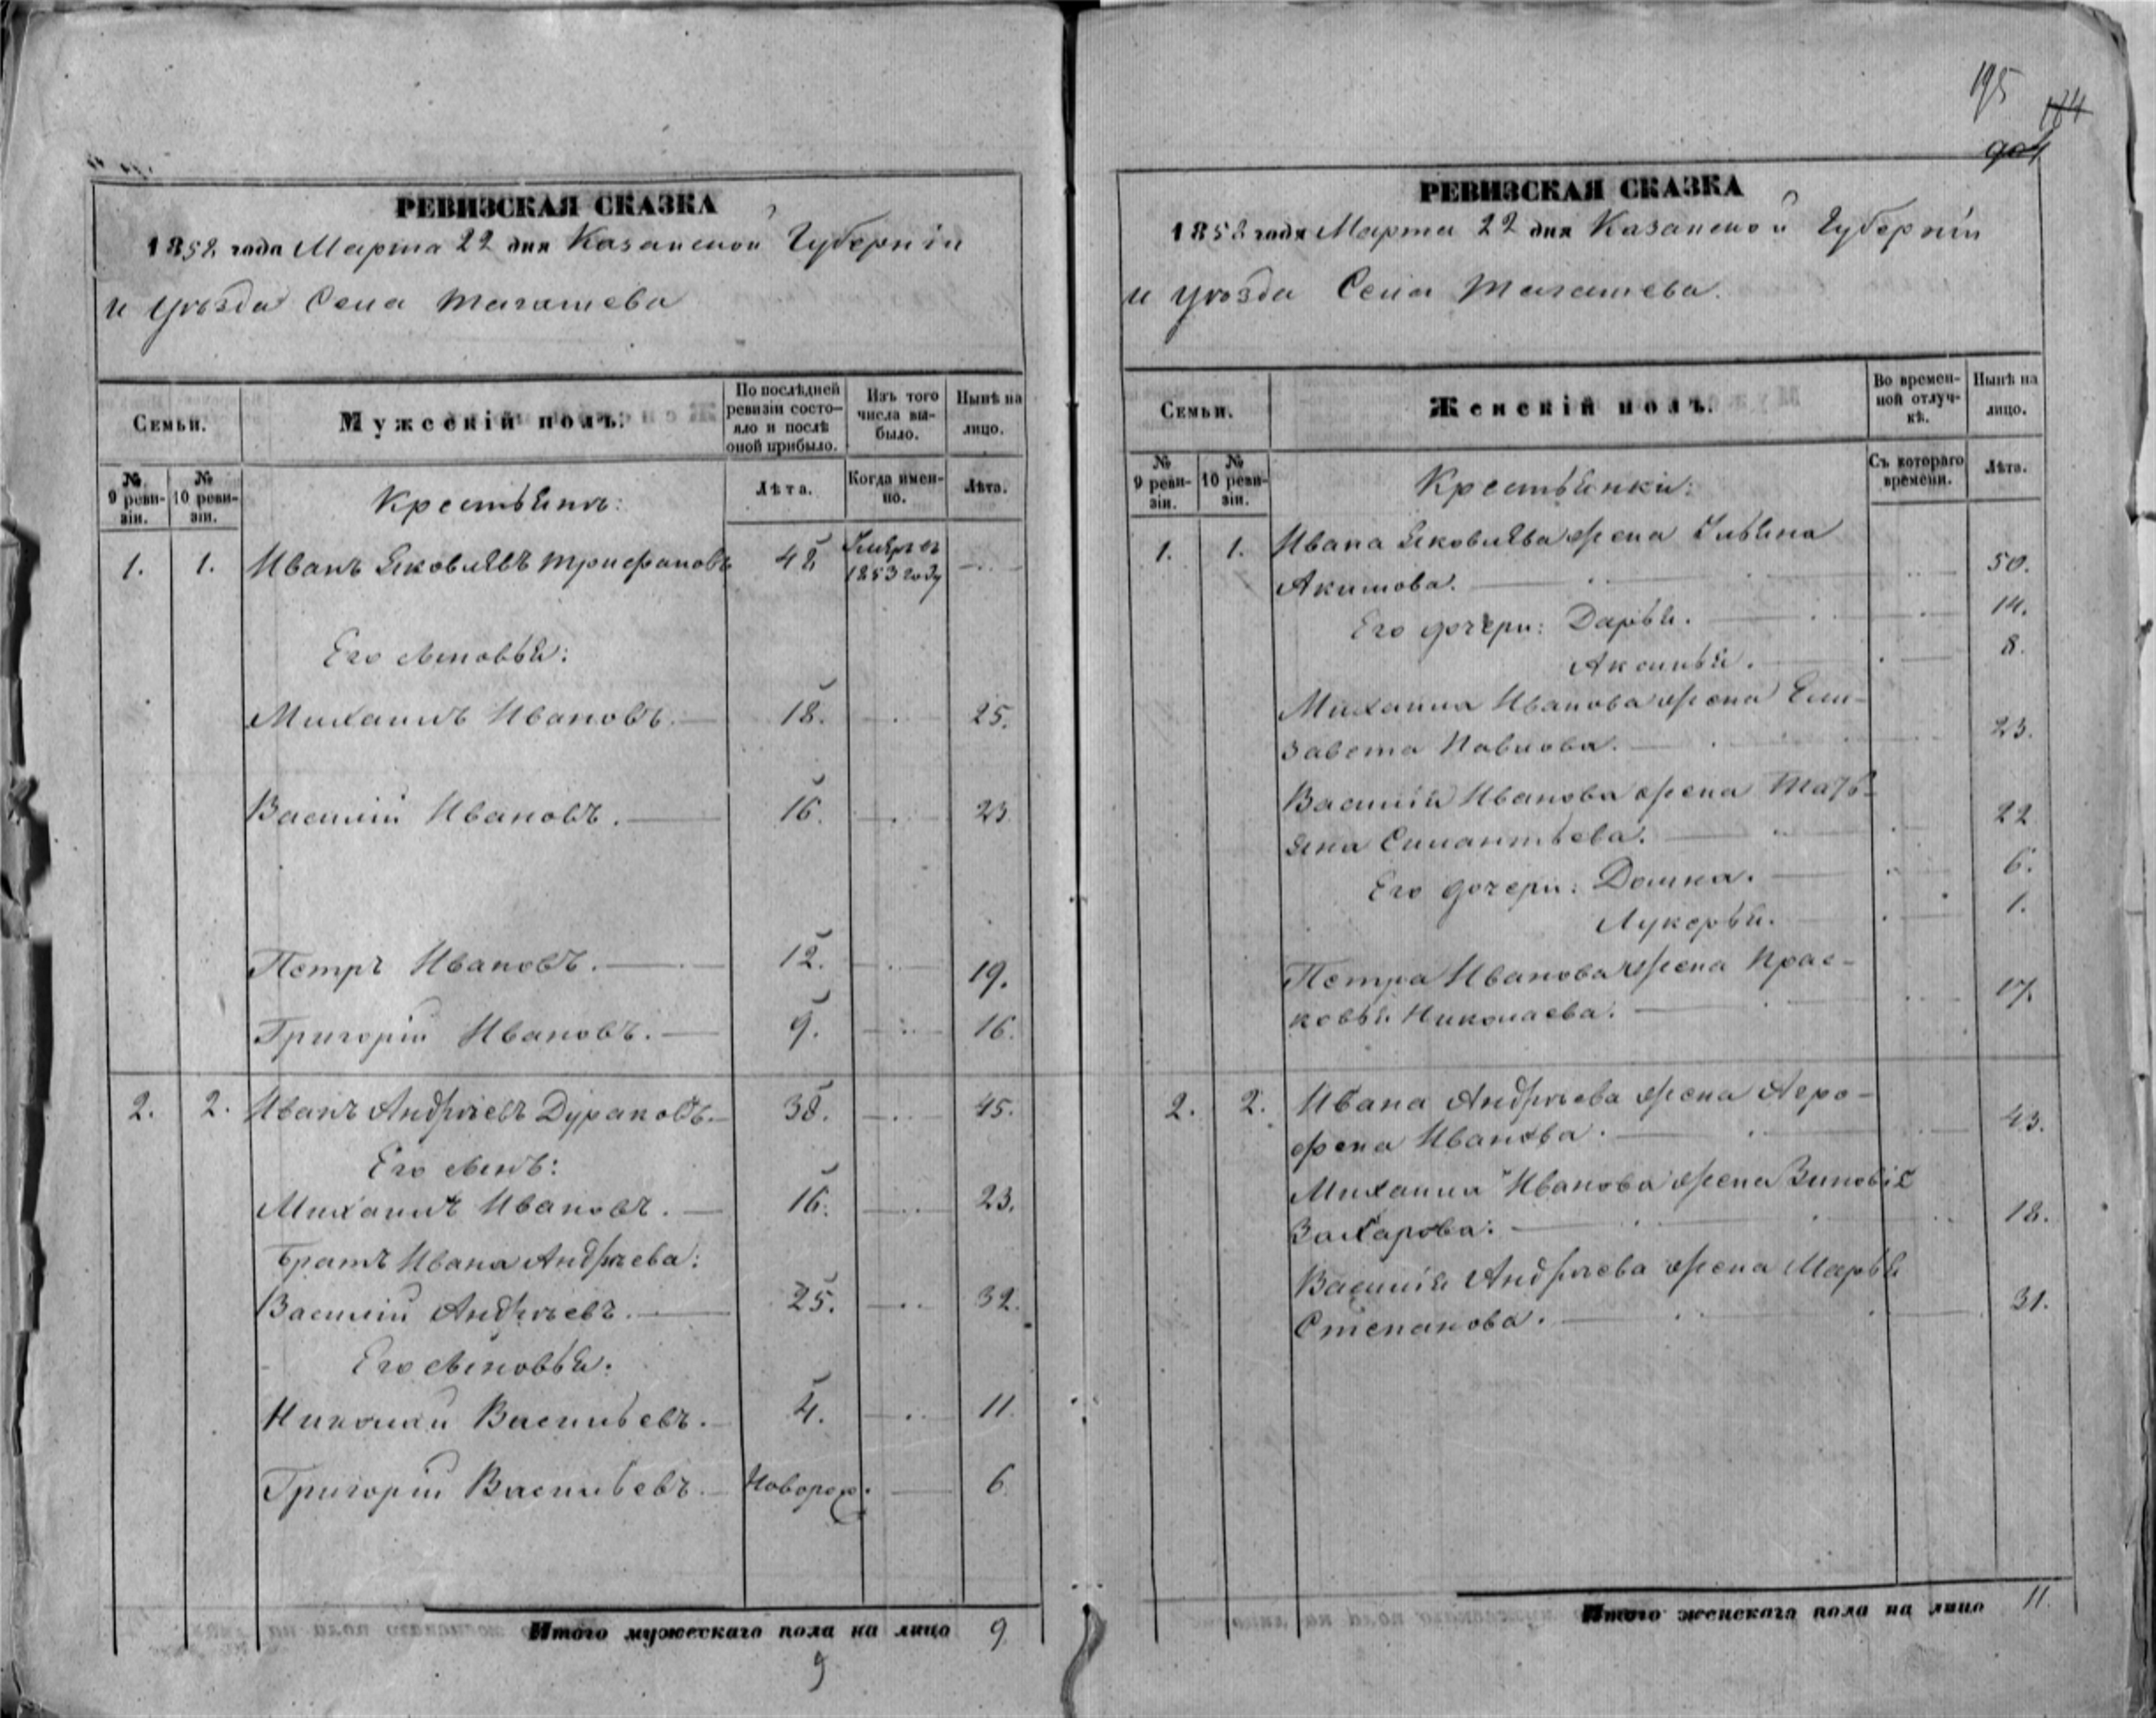 РЕВИЗСКАЯ СКАЗКА
1858 года Марта 22 дня Казанской Губерніи
и уѣзда Села Тагашева
Семьи.
Мужескій полъ.
По послѣдней ревизіи состояло и послѣ оной прибыло.
Изъ того числа выбыло.
Нынѣ на лицо.
№ 9 ревизіи.
№ 10 ревизіи.
Крестьянъ:
Лѣта.
Когда именно.
Лѣта.
1. 1. Иванъ Яковлевъ Трифановъ 48 Умеръ въ 1853 году
Его сыновья:
Михаилъ Ивановъ. 18. 25.
Василій Ивановъ. 16. 23
Петръ Ивановъ. 12. 19.
Григорій Ивановъ. 9. 16.
2. 2. Иванъ Андреевъ Дураковъ. 38. 45.
Его сынъ:
Михаилъ Ивановъ. 16. 23.
Братъ Ивана Андреева:
Василій Андреевъ. 25. 32.
Его сыновья.
Николай Васильевъ. 4. 11.
Григорій Васильевъ. Новорож. 6.
Итого мужескаго пола на лицо 9
9
195
174
РЕВИЗСКАЯ СКАЗКА
1858 года Марта 22 дня Казанской Губерніи
и уѣзда Села Тагашева.
Семьи.
Женскій полъ.
Во временной отлучкѣ.
Нынѣ на лицо.
№ 9 ревизіи.
№ 10 ревизіи.
Крестьянки:
Съ котораго времени.
Лѣта.
1. 1. Ивана Яковлева жена Ульяна
Акимова. 50.
Его дочери: Дарья. 14.
Аксинья. 8.
Михаила Иванова жена Ели-
завета Павлова. 23.
Василія Иванова жена Тать-
яна Силантьева. 22
Его дочери: Домна. 6.
Лукерья. 1.
Петра Иванова жена Прас-
ковья Николаева. 17.
2. 2. Ивана Андреева жена Агро-
фена Иванова. 43.
Михаила Иванова жена Зиновія
Захарова. 18.
Василія Андреева жена Марья
Степанова. 31.
Итого женскаго пола на лицо 11.